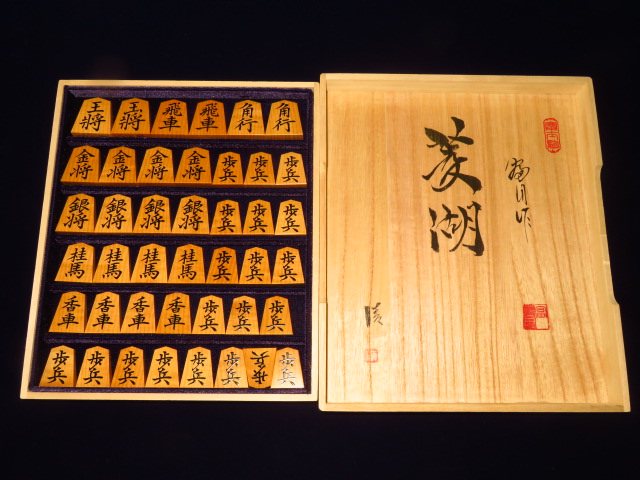 王将 玉将 飛車 飛車 角行 角行
金将 金将 金将 金将 歩兵 歩兵 歩兵
銀将 銀将 銀将 銀将 歩兵 歩兵 歩兵
桂馬 桂馬 桂馬 桂馬 歩兵 歩兵 歩兵
香車 香車 香車 香車 歩兵 歩兵 歩兵
歩兵 歩兵 歩兵 歩兵 歩兵 歩兵 歩兵
菱湖